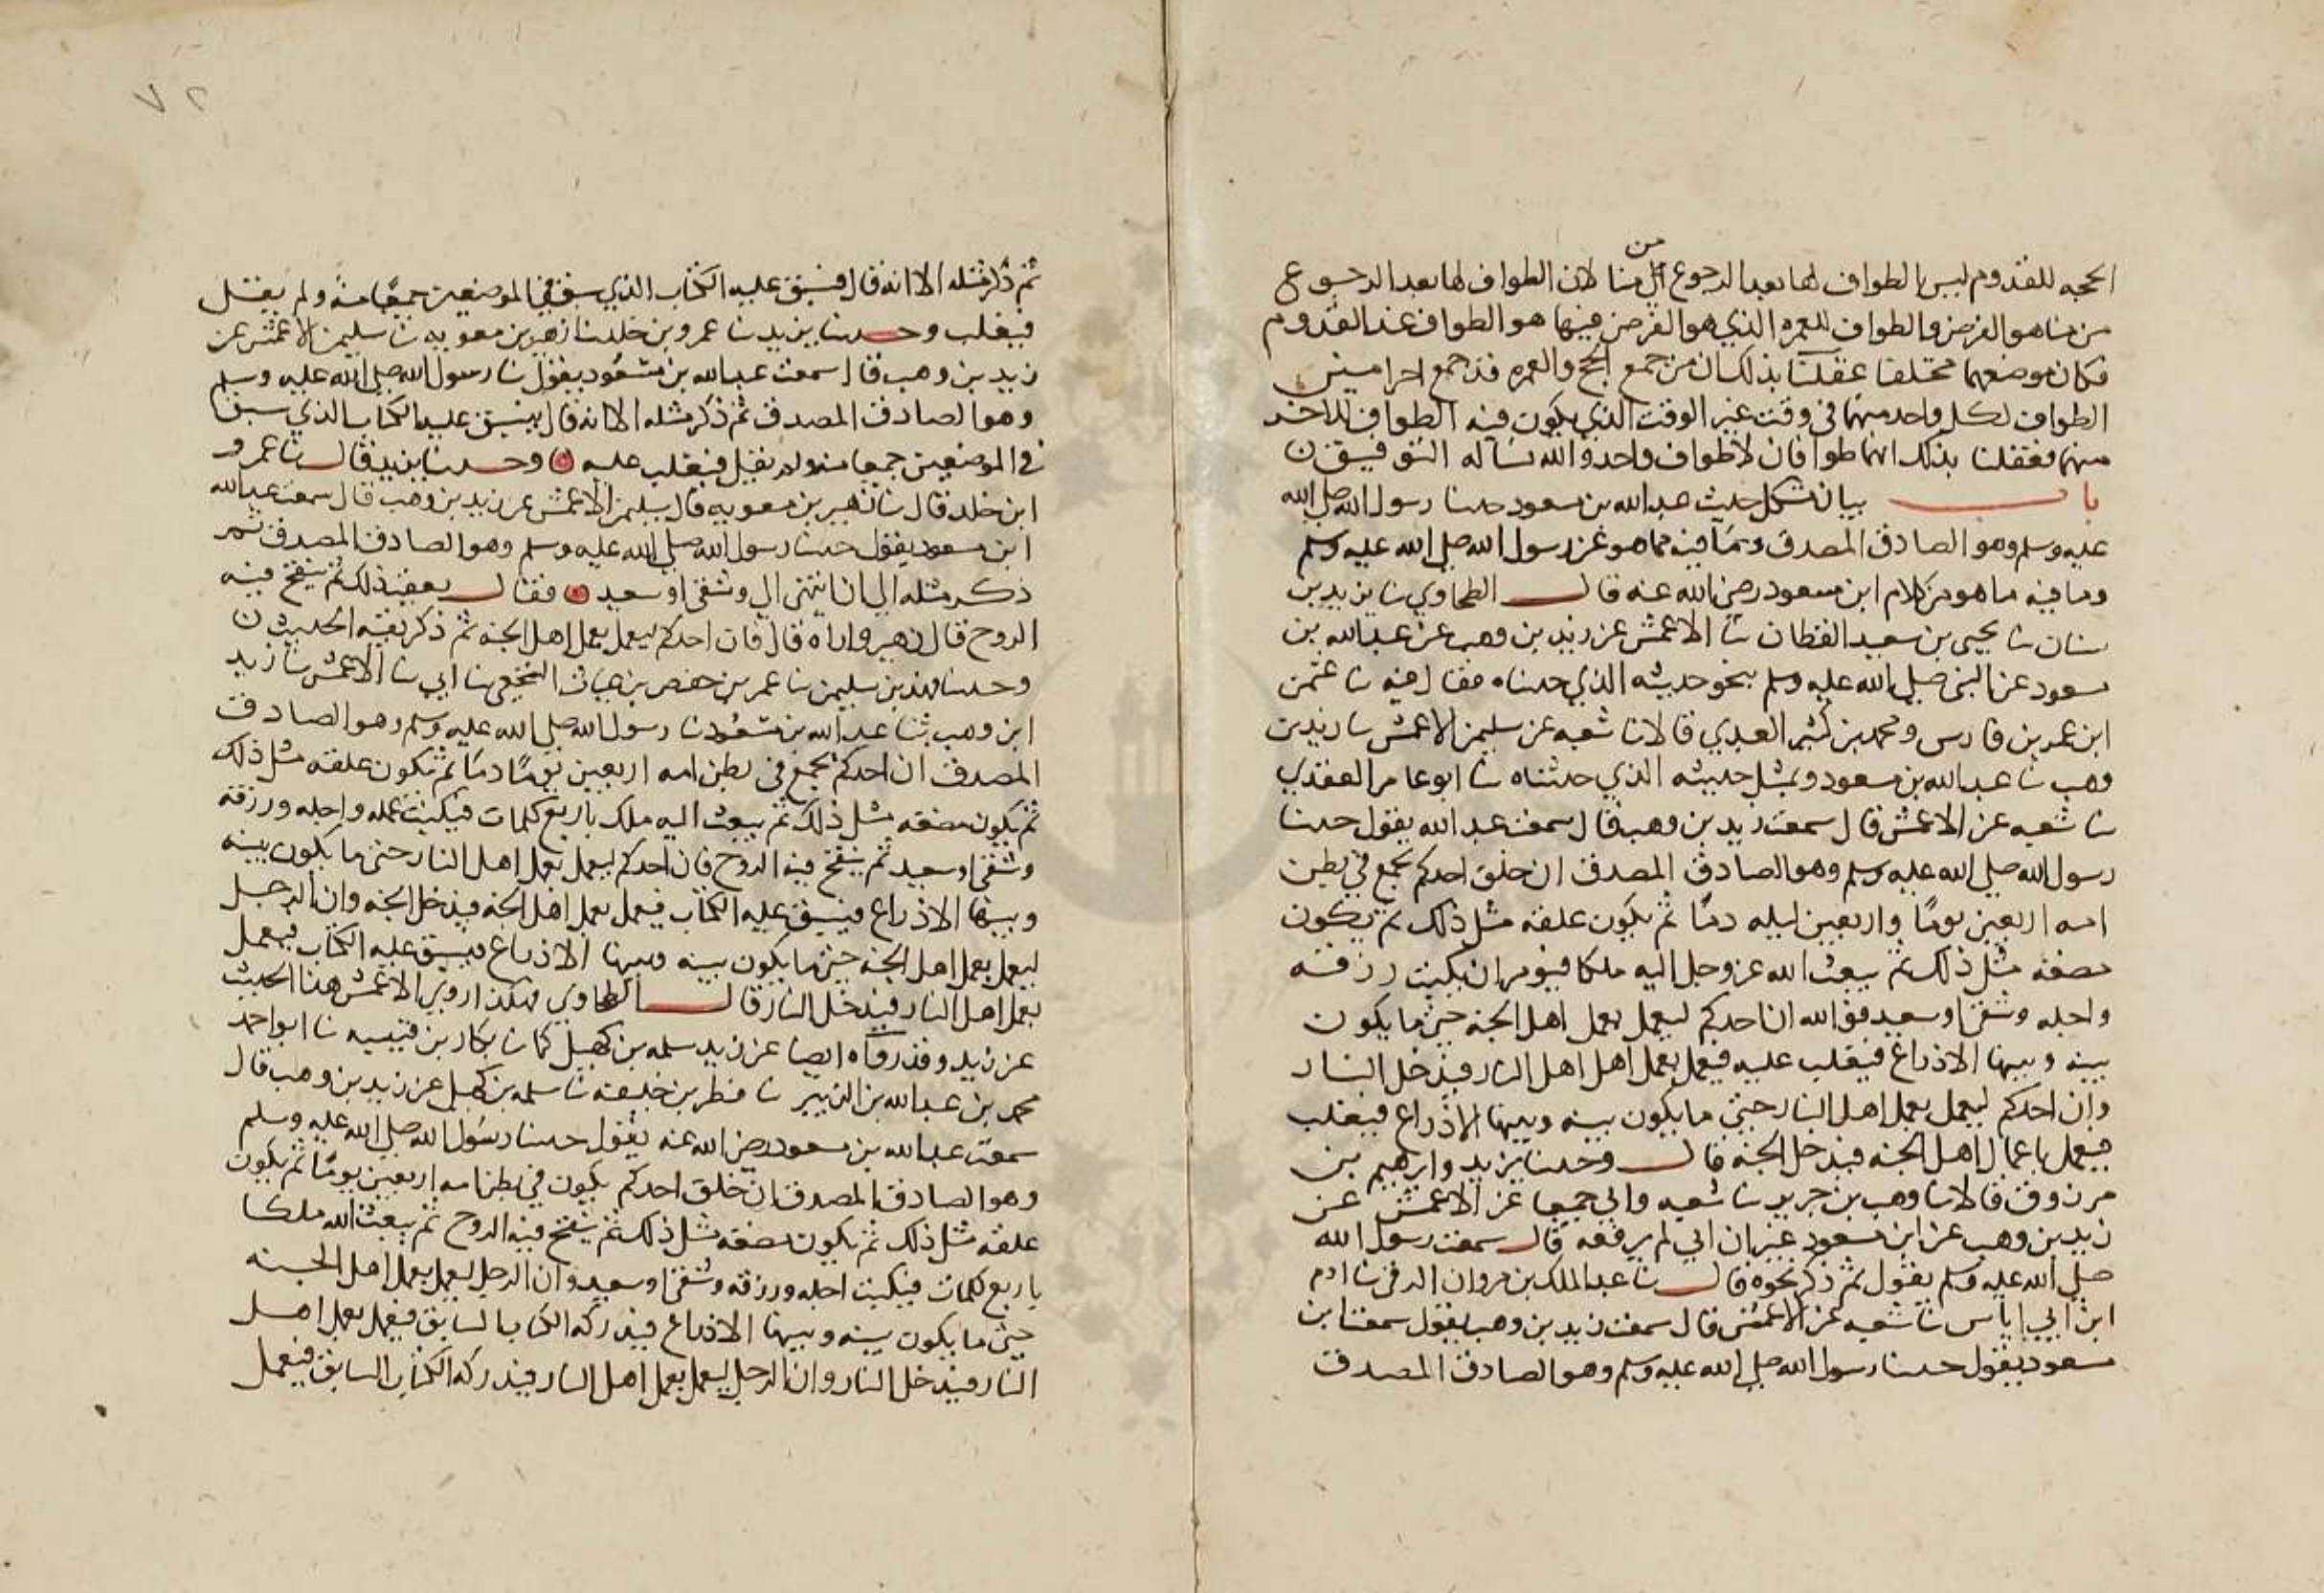 من
الحجه للقدوم ليس الطواف لها بعد الرجوع الى منا لان الطواف لها بعد الرجوع
من منا هو الفرض والطواف للعمره الذي هو الفرض فيها هو الطواف عند القدوم
فكان موضعهما مختلفا عقلنا بذلك ان من جمع الحج والعمره قد جمع احرامين
الطواف لكل واحد منهما في وقت غير الوقت الذي يكون فيه الطواف للاخر
منهما فعقلنا بذلك انهما طوافان لا طواف واحد والله نسأله التوفيق ن
باب بيان مشكل حديث عبد الله بن مسعود حدثنا رسول الله صلى الله
عليه وسلم وهو الصادق المصدق ومما فيه مما هو عن رسول الله صلى الله عليه وسلم
وما فيه ما هو من كلام ابن مسعود رضي الله عنه قال الطحاوي نا يزيد بن
سنان نا يحيى بن سعيد القطان نا الاعمش عن زيد بن وهب عن عبد الله بن
مسعود عن النبي صلى الله عليه وسلم بنحو حديثه الذي حدثناه فقال فيه نا عثمن
ابن عمر بن فارس ومحمد بن كثير العبدي قالا نا شعبه عن سليمن الاعمش نا زيد بن
وهب نا عبد الله بن مسعود وبمثل حديثه الذي حدثناه نا ابو عامر العقدي
نا شعبه عن الاعمش قال سمعت زيد بن وهب قال سمعت عبد الله يقول حدثنا
رسول الله صلي الله عليه وسلم وهو الصادق المصدق ان خلق احدكم يجمع في بطن
امه اربعين يومًا واربعين ليله دمًا ثم يكون علقه مثل ذلك ثم يكون
مضغه مثل ذلك ثم يبعث الله عز وجل اليه ملكا فيؤمر ان يكتب رزقه
واجله وشقى او سعيد فوالله ان احدكم ليعمل بعمل اهل الجنه حتى ما يكون
بينه وبينها الا ذراع فيغلب عليه فيعمل بعمل اهل اهل النار فيدخل النار
وان احدكم ليعمل بعمل اهل النار حتى ما يكون بينه وبينها الا ذراع فيغلب
فيعمل باعمال اهل الجنه فيدخل الجنه قال وحدثنا يزيد وابرهيم بن
مرزوق قالا نا وهب بن جرير نا شعبه وابي جميعا عن الاعمش عن
زيد بن وهب عن ابن مسعود غير ان ابي لم يرفعه قال سمعت رسول الله
صلى الله عليه وسلم يقول ثم ذكر نحوه قال نا عبد الملك بن مروان الرقي نا ادم
ابن ابي اياس نا شعبه عن الاعمش قال سمعت زيد بن وهب يقول سمعت ابن
مسعود يقول حدثنا رسول الله صلى الله عليه وسلم وهو الصادق المصدق
٧٢
ثم ذكر مثله الا انه قال فيسبق عليه الكتاب الذي سبق في الموضعين جميعًا منه ولم يقل
فيغلب وحدثنا يزيد نا عمرو بن خلد نا زهير بن معويه نا سليمن الاعمش عن
زيد بن وهب قال سمعت عبد الله بن مسعود يقول نا رسول الله صلى الله عليه وسلم
وهو الصادق المصدق ثم ذكر مثله الا انه قال فيسبق عليه الكتاب الذي سبق
في الموضعين جميعا منه ولم يقل فيغلب عليه ن وحدثنا يزيد قال نا عمرو
ابن خلد قال نا زهير بن معويه قال سليمن الاعمش عن زيد بن وهب قال سمعت عبد الله
ابن مسعود يقول حدثنا رسول الله صلى الله عليه وسلم وهو الصادق المصدق ثم
ذكر مثله الى ان انتهى الى وشقى او سعيد ن فقال بعقب ذلك ثم ينفخ فيه
الروح قال زهير واراه قال فان احدكم ليعمل بعمل اهل الجنه ثم ذكر بقيه الحديث ن
وحدثنا فهد بن سليمن نا عمر بن حفص بن غياث النخعي نا ابي نا الاعمش نا زيد
ابن وهب ثنا عبد الله بن مسعود نا رسول الله صلى الله عليه وسلم وهو الصادق
المصدق ان احدكم يجمع في بطن امه اربعين يومًا دمًا ثم تكون علقه مثل ذلك
ثم يكون مضغه مثل ذلك ثم يبعث اليه ملك باربع كلمات فيكتب عمله واجله ورزقه
وشقى او سعيد ثم ينفخ فيه الروح فان احدكم ليعمل بعمل اهل النار حتى ما يكون بينه
وبينها الا ذراع فيسبق عليه الكتاب فيعمل بعمل اهل الجنه فيدخل الجنه وان الرجل
ليعمل بعمل اهل الجنه حتى ما يكون بينه وبينها الا ذراع فيسبق عليه الكتاب فيعمل
بعمل اهل النار فيدخل النار قال الطحاوي هكذا روى الاعمش هذا الحديث
عن زيد وقد رواه ايضا عن زيد سلمه بن كهيل كما نا بكار بن قتيبه نا ابو احمد
محمد بن عبد الله بن الزبير نا فطر بن خليفه نا سلمه بن كهيل عن زيد بن وهب قال
سمعت عبد الله بن مسعود رضي الله عنه يقول حدثنا رسول الله صلى الله عليه وسلم
وهو الصادق المصدق ان خلق احدكم يكون في بطن امه اربعين يومًا ثم يكون
علقه مثل ذلك ثم يكون مضغه مثل ذلك ثم ينفخ فيه الروح ثم يبعث الله ملكا
باربع كلمات فيكتب اجله ورزقه وشقى او سعيد وان الرجل ليعمل بعمل اهل الجنه
حتى ما يكون بينه وبينها الا ذراع فيدركه الكتاب السابق فيعمل بعمل اهل
النار فيدخل النار وان الرجل ليعمل بعمل اهل النار فيدركه الكتاب السابق فيعمل